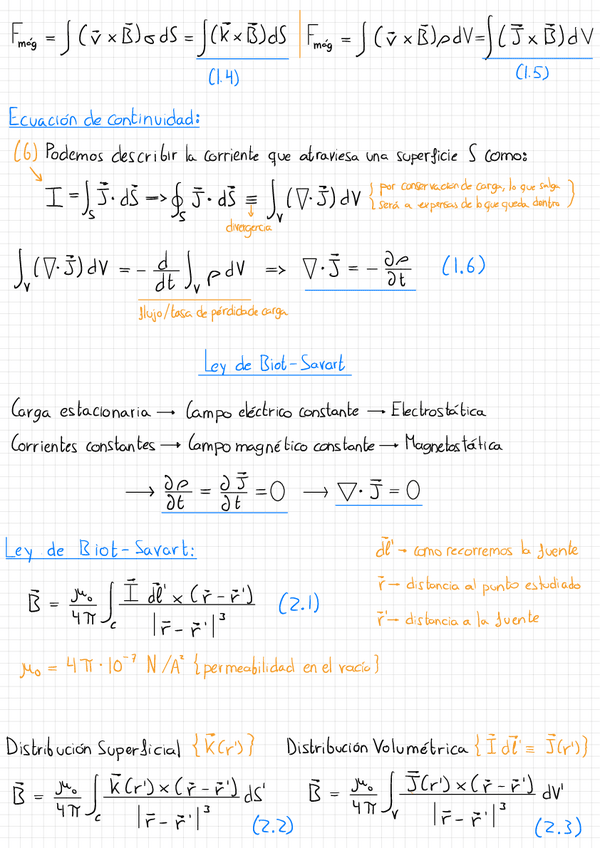 F⃗_móg = ∫(v⃗ × B⃗)σ dS = ∫(K⃗ × B⃗)dS | F⃗_móg = ∫(v⃗ × B⃗)ρdV = ∫(J⃗ × B⃗)dV
(1.4) (1.5)
Ecuación de continuidad:
(6) Podemos describir la corriente que atraviesa una superficie S como:
I = ∫_S J⃗ · dS⃗ —> ∮_S J⃗ · dS⃗ ≡ ∫_V (∇·J⃗) dV { por conservación de carga, lo que salga
será a expensas de lo que queda dentro }
divergencia
∫_V (∇·J⃗) dV = - d/dt ∫_V ρ dV => ∇·J⃗ = - ∂ρ/∂t (1.6)
flujo/tasa de pérdida de carga
Ley de Biot-Savart
Carga estacionaria → Campo eléctrico constante → Electrostática
Corrientes constantes → Campo magnético constante → Magnetostática
→ ∂ρ/∂t = ∂J⃗/∂t = 0 → ∇·J⃗ = 0
Ley de Biot-Savart:
dl⃗' → como recorremos la fuente
B⃗ = μ₀/4π ∫_c I⃗ dl⃗' × (r⃗ - r⃗')/|r⃗ - r⃗'|³ (2.1)
r⃗ → distancia al punto estudiado
r⃗' → distancia a la fuente
μ₀ = 4π·10⁻⁷ N/A² {permeabilidad en el vacío}
Distribución Superficial {K⃗(r')} Distribución Volumétrica {I⃗ dl⃗' ≡ J⃗(r')}
B⃗ = μ₀/4π ∫_c K⃗(r') × (r⃗ - r⃗')/|r⃗ - r⃗'|³ dS' (2.2) B⃗ = μ₀/4π ∫_V J⃗(r') × (r⃗ - r⃗')/|r⃗ - r⃗'|³ dV' (2.3)